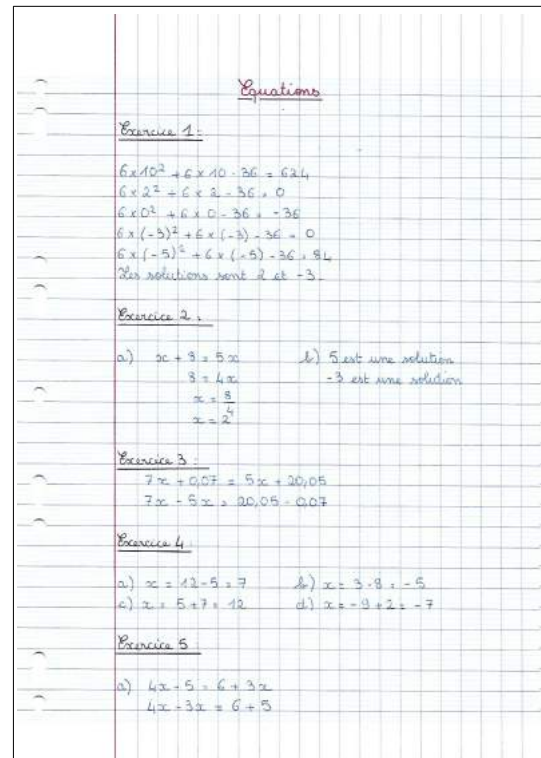 Equations
Exercice 1:
6 x 10² + 6 x 10 - 36 = 624
6 x 2² + 6 x 2 - 36 = 0
6 x 0² + 6 x 0 - 36 = -36
6 x (-3)² + 6 x (-3) - 36 = 0
6 x (-5)² + 6 x (-5) - 36 = 84
Les solutions sont 2 et -3.
Exercice 2:
a) x + 8 = 5x b) 5 est une solution
8 = 4x -3 est une solution
x = 8/4
x = 2
Exercice 3:
7x + 0,07 = 5x + 20,05
7x - 5x = 20,05 - 0,07
Exercice 4:
a) x = 12 - 5 = 7 b) x = 3 - 8 = -5
c) x = 5 + 7 = 12 d) x = -9 + 2 = -7
Exercice 5
a) 4x - 5 = 6 + 3x
4x - 3x = 6 + 5